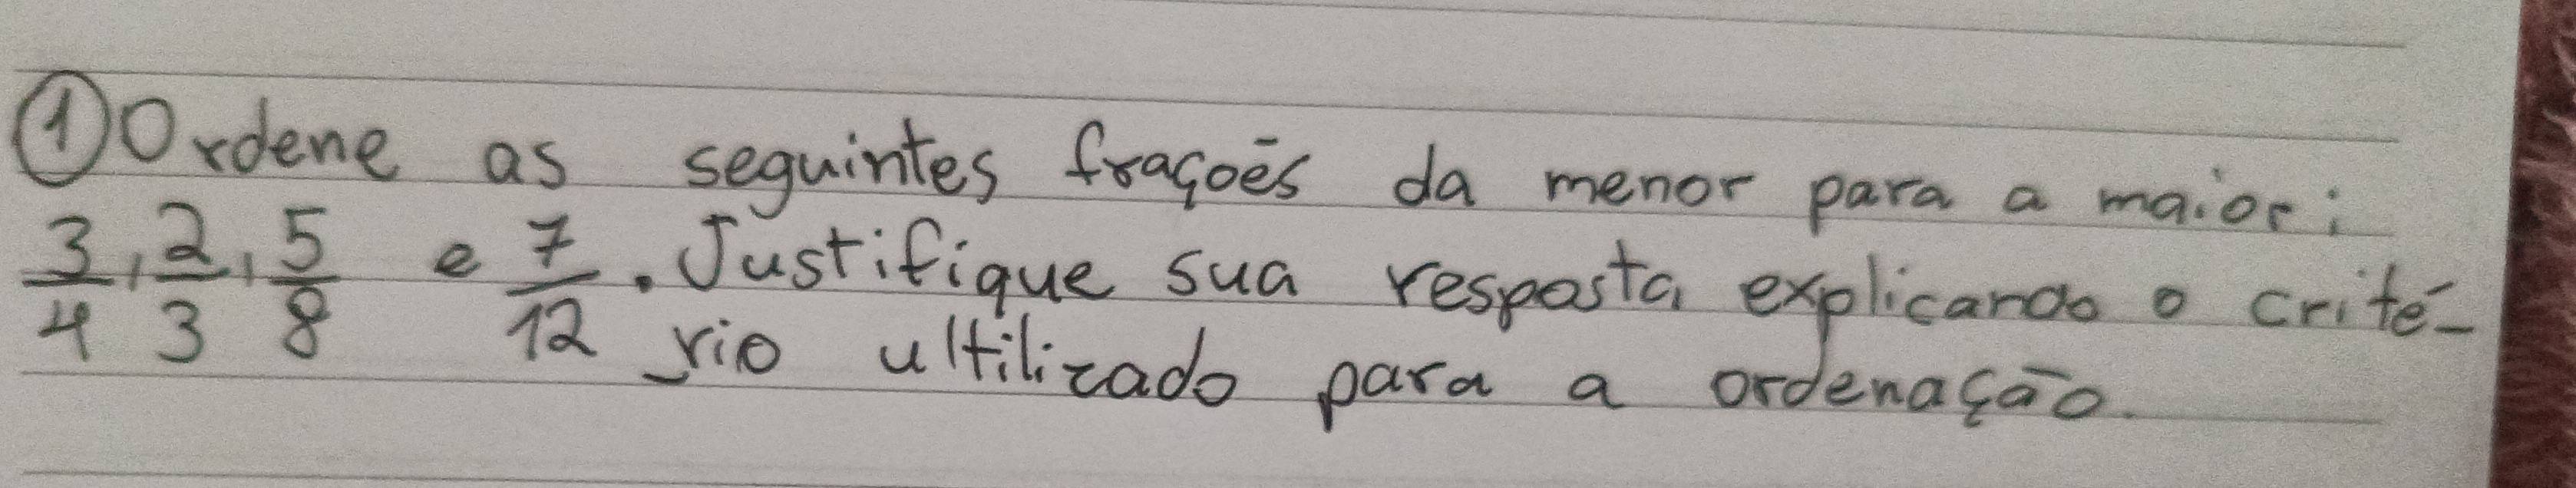 ① Ordene as seguintes fraçoēs da menor para a maior:
3/4, 2/3, 5/8 e 7/12. Justifique sua resposta explicando o crité-
rio ultilizado para a ordenação.